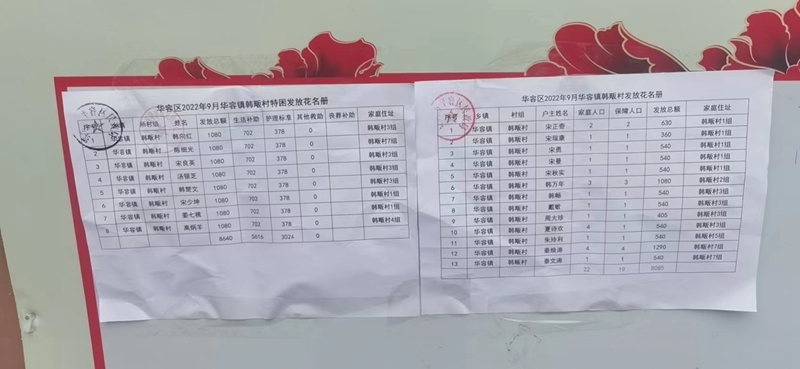 华容区2022年9月华容镇韩畈村特困发放花名册
村组 姓名 发放总额 生活补助 护理标准 其他救助 丧葬补助 家庭住址
1 华容镇 韩畈村 韩向红 1080 702 378 0 韩畈村3组
2 华容镇 韩畈村 陈恒光 1080 702 378 0 韩畈村7组
3 华容镇 韩畈村 宋良英 1080 702 378 0 韩畈村3组
4 华容镇 韩畈村 汤银芝 1080 702 378 0 韩畈村3组
5 华容镇 韩畈村 韩楚文 1080 702 378 0 韩畈村1组
6 华容镇 韩畈村 宋少坤 1080 702 378 0 韩畈村1组
7 华容镇 韩畈村 姜七桃 1080 702 378 0 韩畈村1组
8 华容镇 韩畈村 1080 702 378 0 韩畈村4组
8640 5616 3024 0
华容区2022年9月华容镇韩畈村发放花名册
序号 乡镇 村组 户主姓名 家庭人口 保障人口 发放总额 家庭住址
1 华容镇 韩畈村 2 2 630 韩畈村1组
2 华容镇 韩畈村 1 1 360 韩畈村1组
3 华容镇 韩畈村 宋勇 1 1 540 韩畈村1组
4 华容镇 韩畈村 宋曼 1 1 540 韩畈村1组
5 华容镇 韩畈村 宋秋实 1 1 540 韩畈村1组
6 华容镇 韩畈村 韩万年 3 3 1080 韩畈村2组
7 华容镇 韩畈村 韩畅 1 1 540 韩畈村2组
8 华容镇 韩畈村 戴敏 1 1 540 韩畈村3组
9 华容镇 韩畈村 周大珍 1 1 405 韩畈村3组
10 华容镇 韩畈村 夏诗欢 4 1 540 韩畈村3组
11 华容镇 韩畈村 朱绪利 1 1 540 韩畈村5组
12 华容镇 韩畈村 姜继涛 4 4 1290 韩畈村7组
13 华容镇 韩畈村 姜文涛 1 1 540 韩畈村7组
22 19 8085